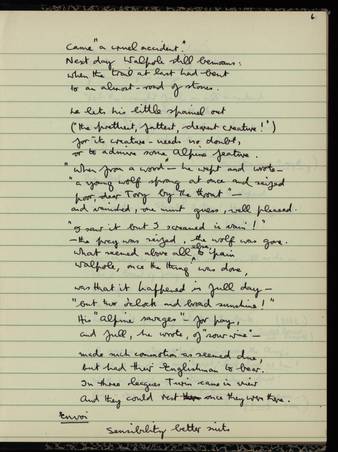 6
Came "a cruel accident."
Next day Walpole still bemoans:
when the trail at last had bent
to an almost-road of stones.
he lets his little spaniel out
("the prettiest, fattest, dearest creature!")
for its creature-needs no doubt,
or to admire some Alpine feature.
"When from a wood — he wept and wrote —
"a young wolf sprang at once and seized
poor, dear Tory by the throat" —
and vanished, one must guess, well pleased.
"I saw it but I screamed in vain!"
— the prey was seized, the wolf was gone.
What seemed above all else to pain
Walpole, once the thing was done,
was that it happened in full day —
"but two o'clock and broad sunshine!"
His "Alpine savages" — for pay,
and full, he wrote, of "sour wine" —
made such commotion as seemed due,
but had their Englishman to bear.
In three leagues Turin came in view
And they could rest once they were there.
Envoi
Sensibility better suits